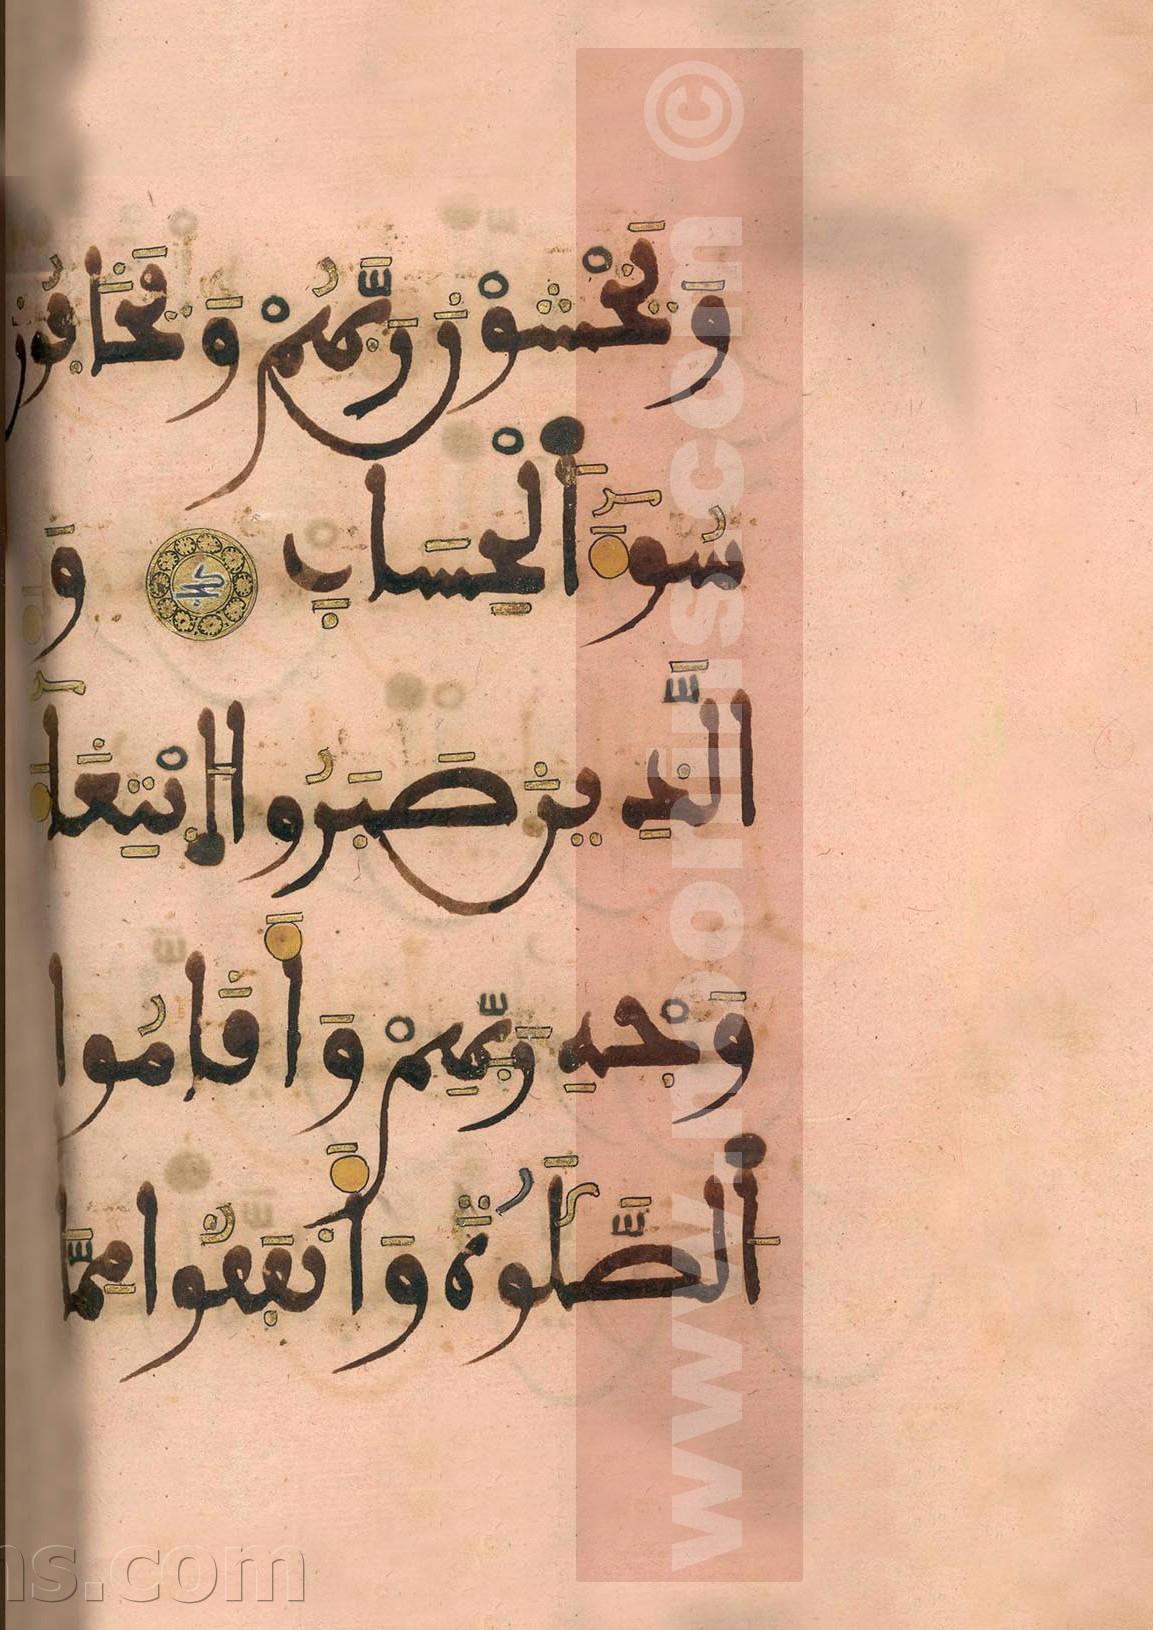 وَيَخْشَوْنَ رَبَّهُمْ وَيَخَافُونَ
سُوٓءَ ٱلْحِسَابِ وَ
ٱلَّذِينَ صَبَرُوا ٱبْتِغَآءَ
وَجْهِ رَبِّهِمْ وَأَقَامُوا
ٱلصَّلَوٰةَ وَأَنفَقُوا مِمَّا
www.noorlis.com ©
ns.com